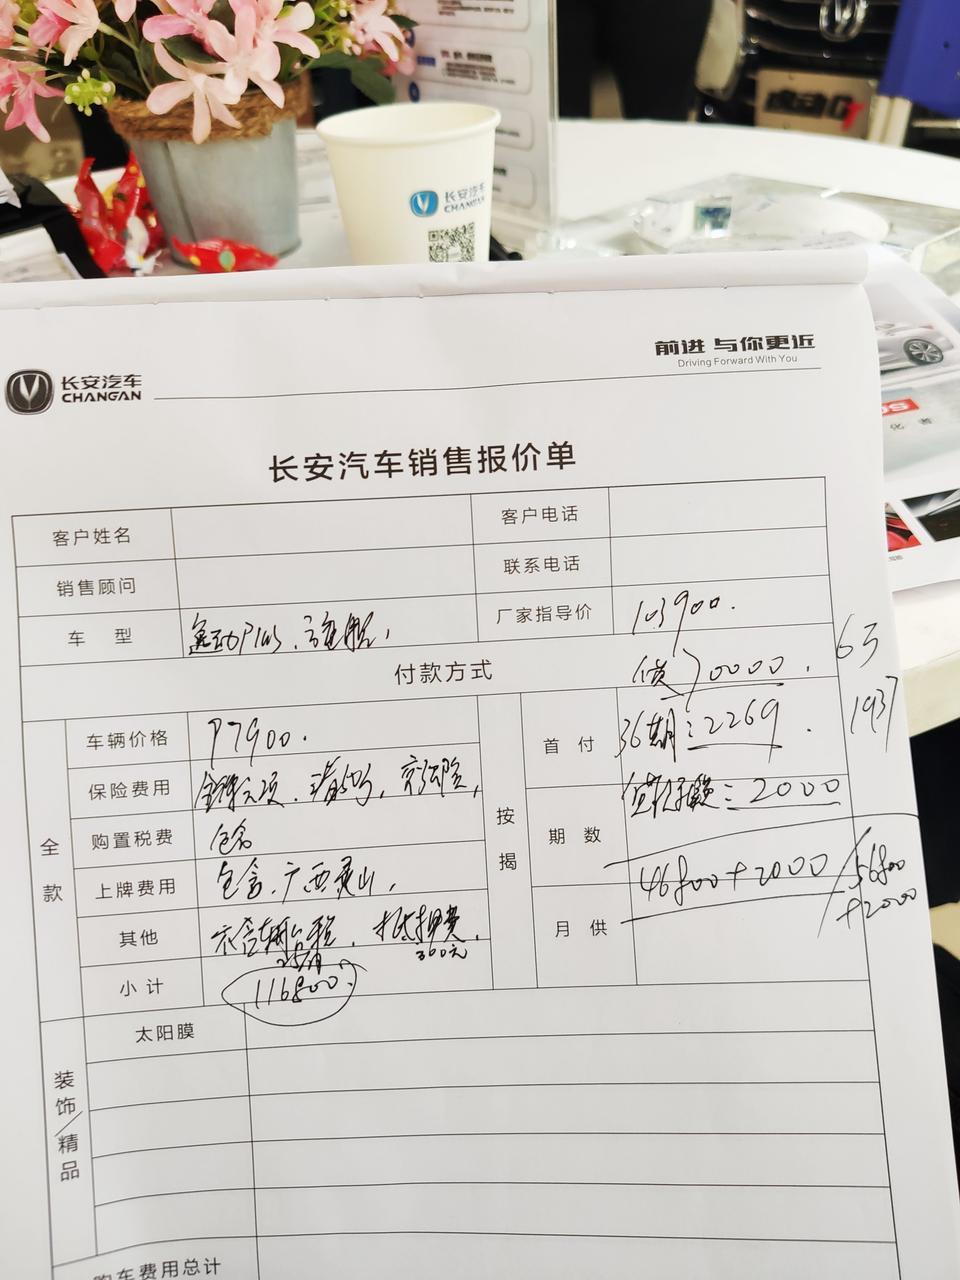 长安汽车
CHANGAN
前进 与你更近
Driving Forward With You
长安汽车
CHANGAN
长安汽车销售报价单
客户姓名
客户电话
销售顾问
联系电话
车 型
逸动Plus、旗舰
厂家指导价
103900.
付款方式
贷70000.
63
全款
车辆价格
97900.
按揭
首 付
36期:2269.
1937
保险费用
购置税费
包含
期 数
2000
上牌费用
包含、广西灵山
月 供
46800+2000
56800
+2000
其他
抵押费
300元
小计
116800.
装饰/精品
太阳膜
购车费用总计